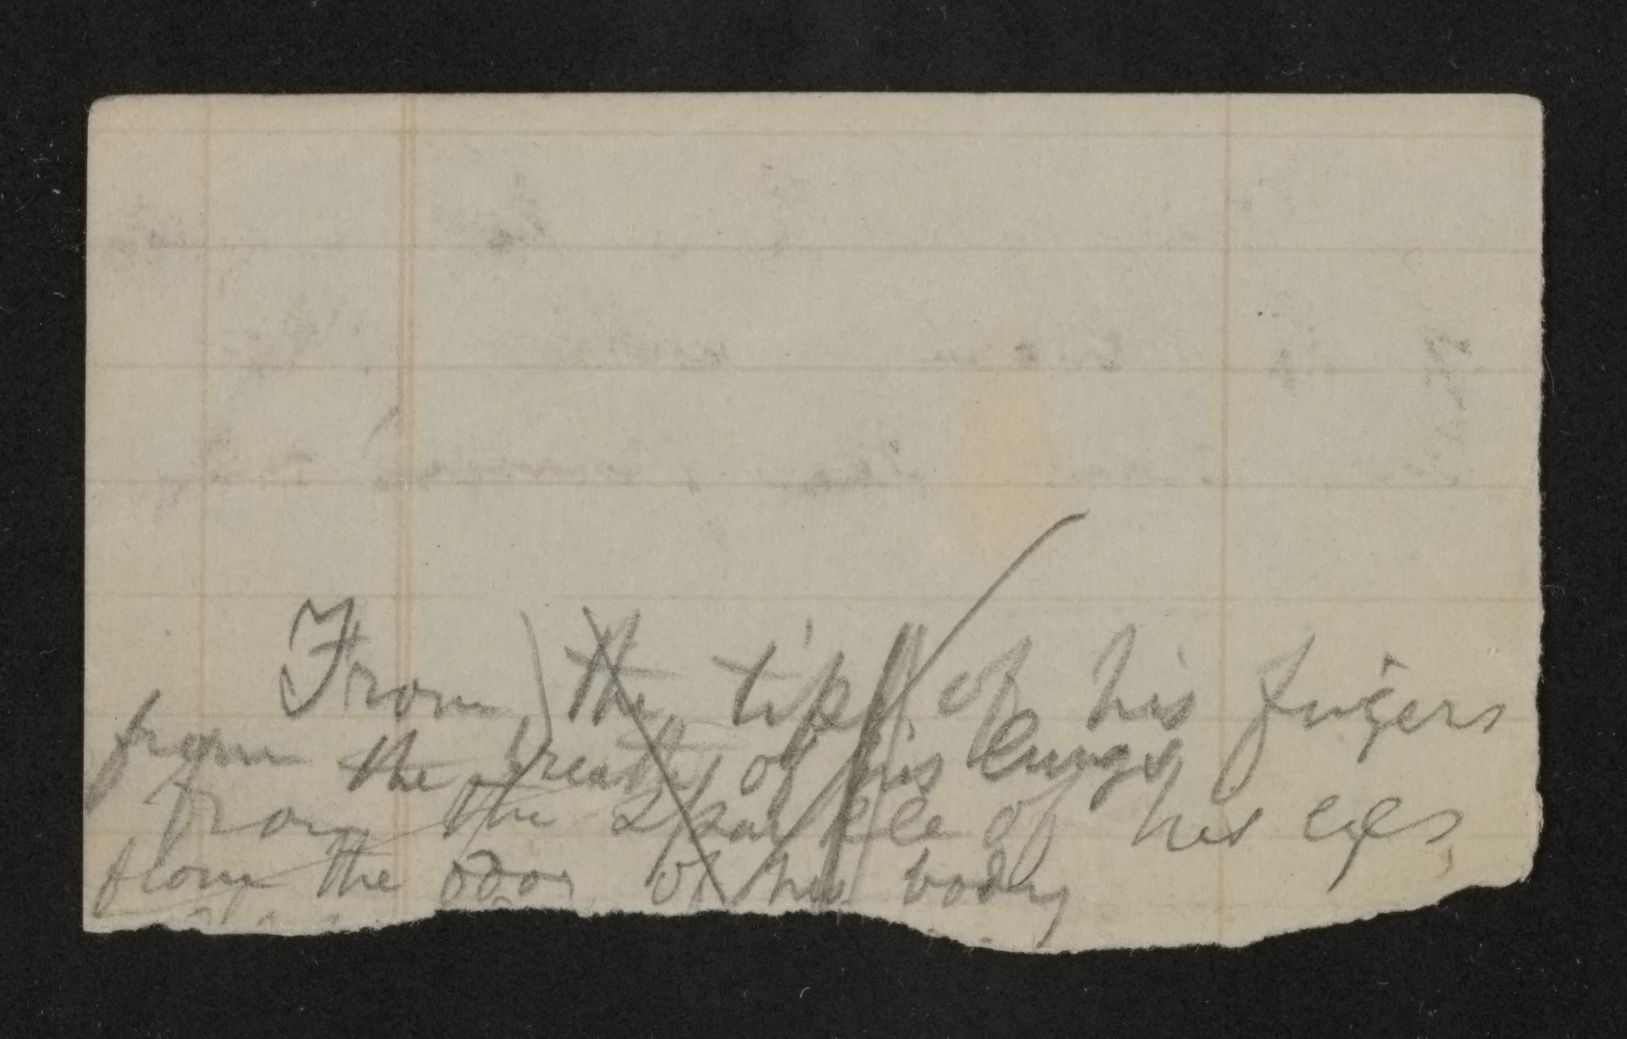 From the tips of his fingers
from the breath of his lungs
from the sparkle of his eyes
from the odor of his body